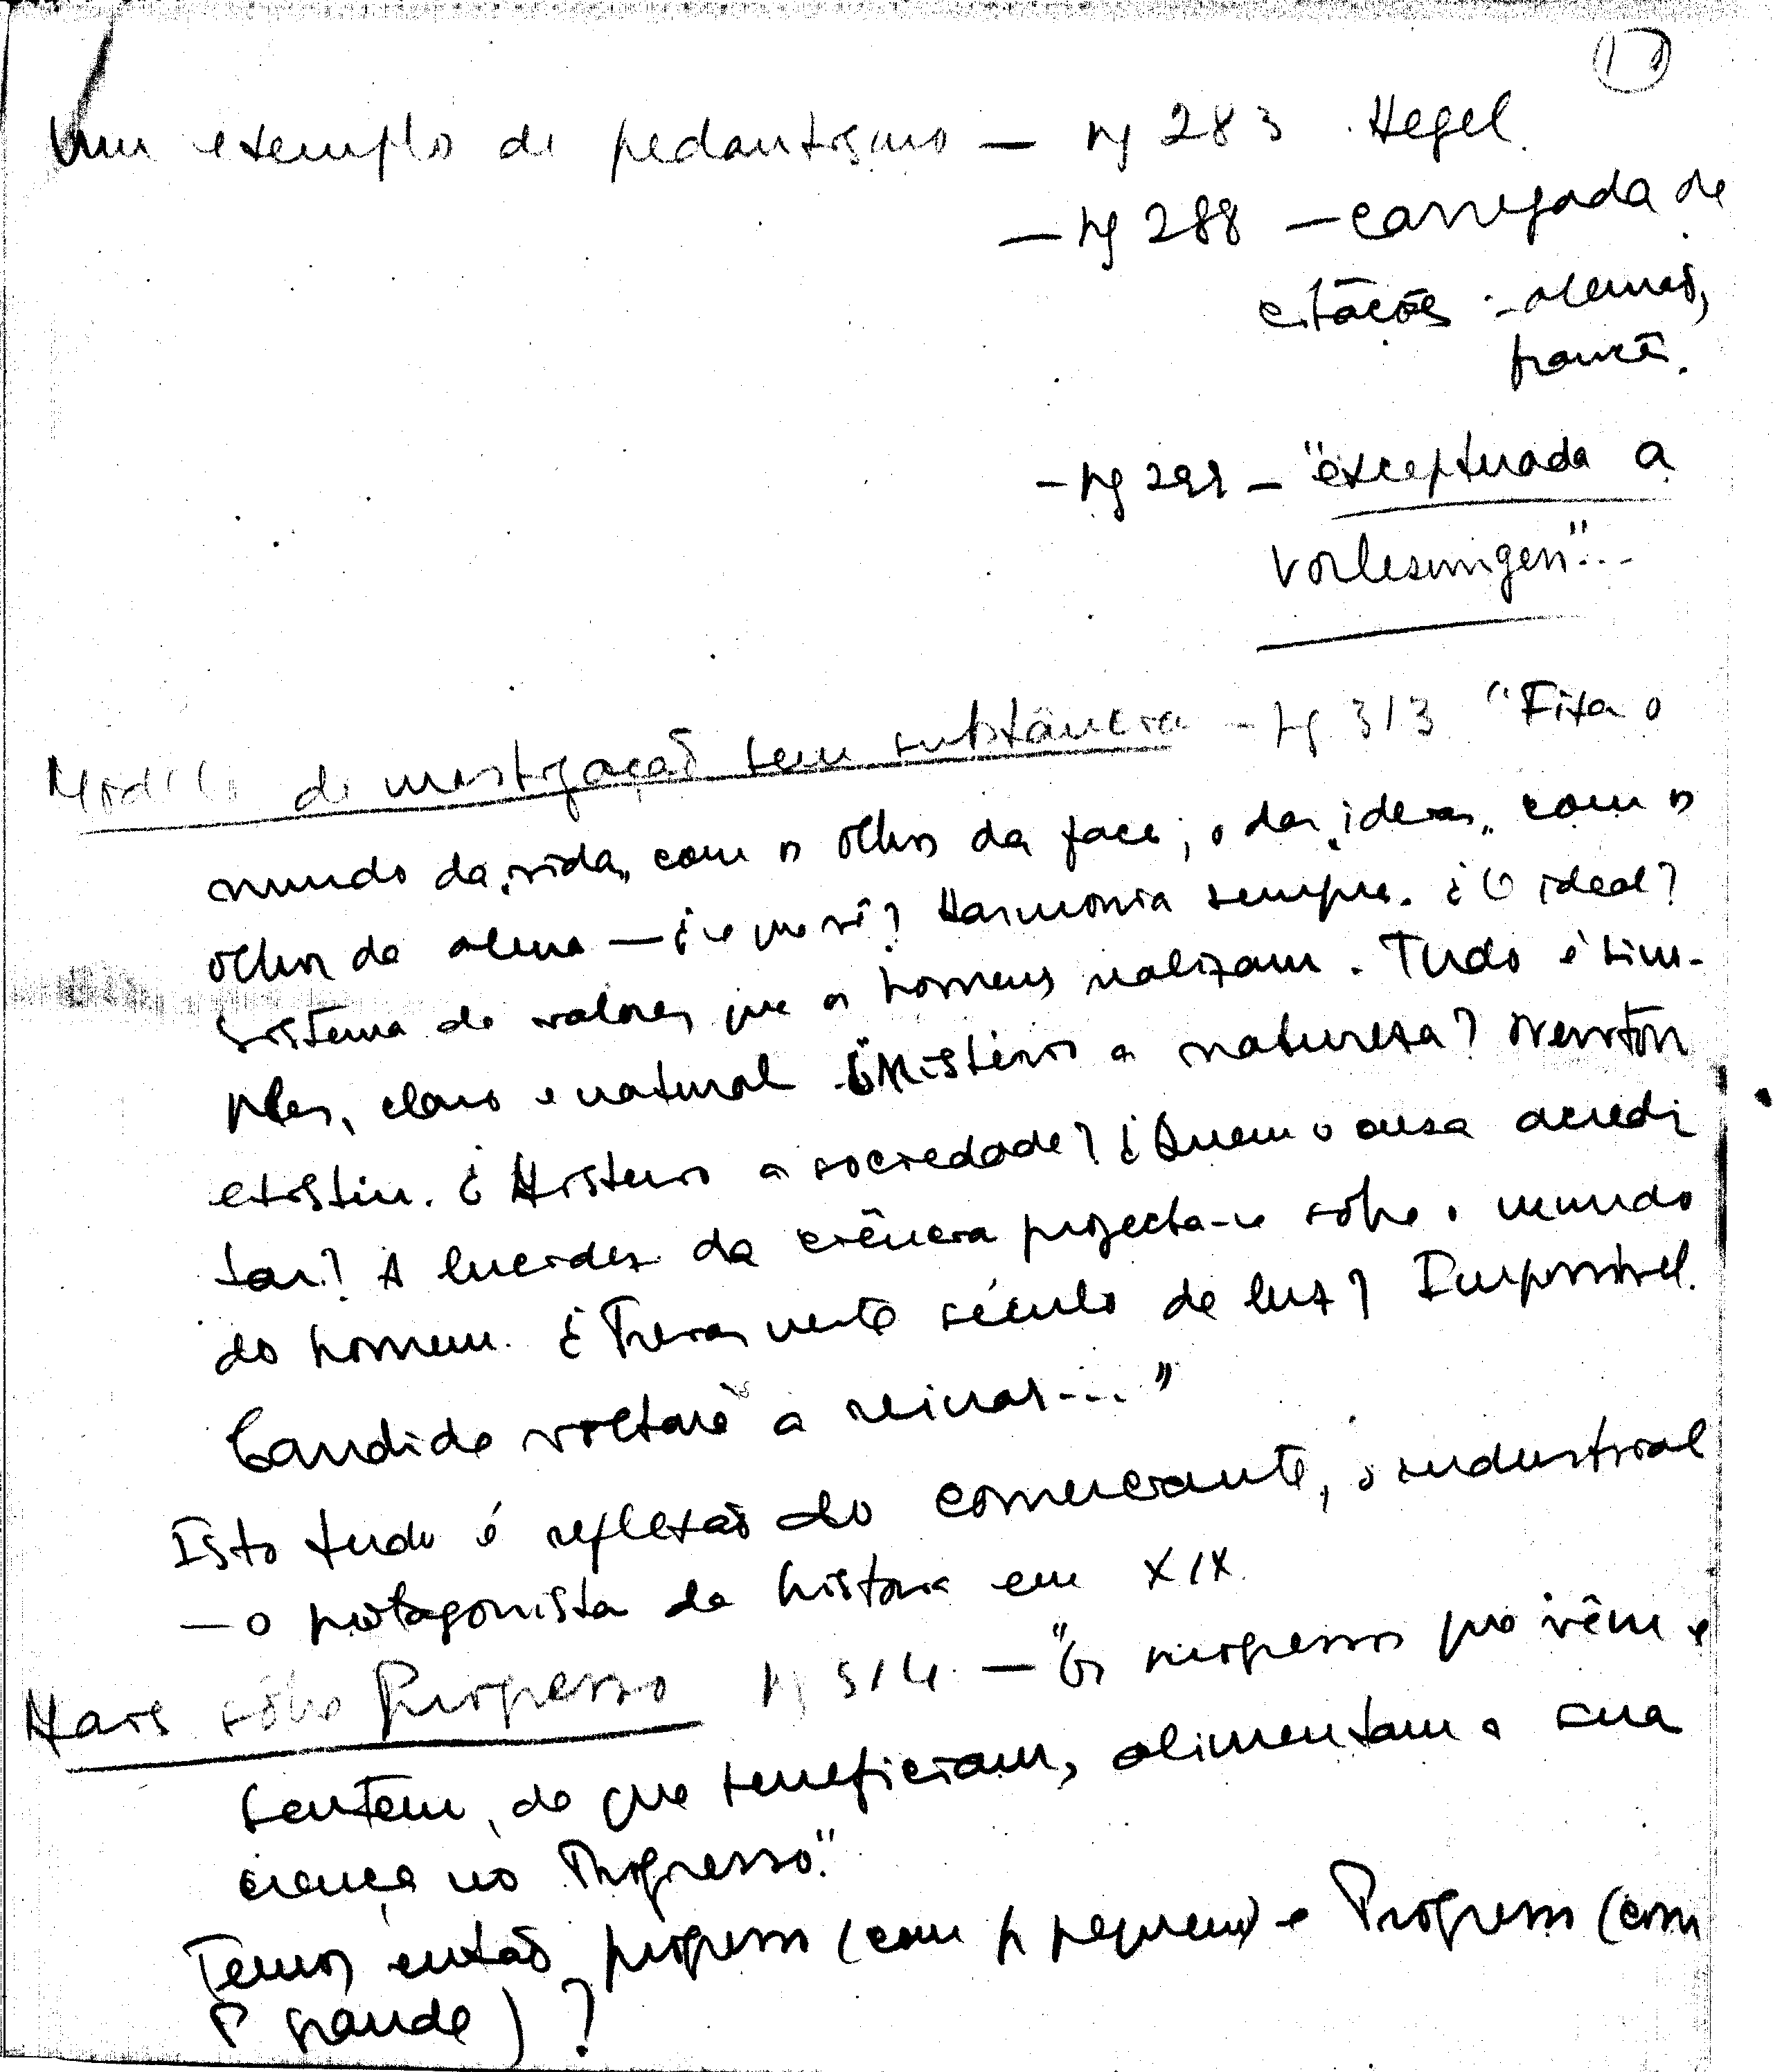 18
Um exemplo de pedantismo — pg 283. Hegel.
— pg 288 — carregada de
citações - alemão,
francês.
— pg 299 — "exceptuada a
Vorlesungen"...
Modêlo de mastigação sem substância - pg 313 "Fixa o
mundo da "vida" com os olhos da face; o das "ideias" com os
olhos da alma — ¿e que vê? Harmonia sempre. ¿O ideal?
Sistema de valores que os homens realizam. Tudo é sim-
ples, claro e natural. ¿Mistérios a natureza? Newton
existiu. ¿Mistério a sociedade? ¿Quem o ousa acredi
tar? A lucidez da ciência projecta-se sôbre o mundo
do homem. ¿Trevas neste século de luz? Impossível.
Candide voltará a reinar...."
Isto tudo é reflexão do comerciante, o industrial
— o protagonista da história em XIX.
Mais sôbre Progresso pg 314 — "Os progressos que vêm e
sentem, de que beneficiam, alimentam a sua
crença no Progresso."
Temos então progresso (com p pequeno) e Progresso (com
P grande)?